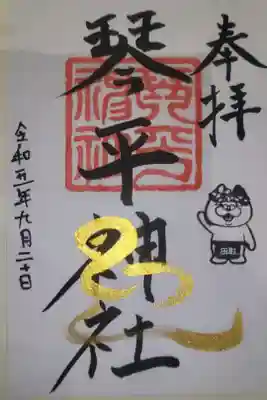 奉拝
琴平神社
令和元年九月二十日